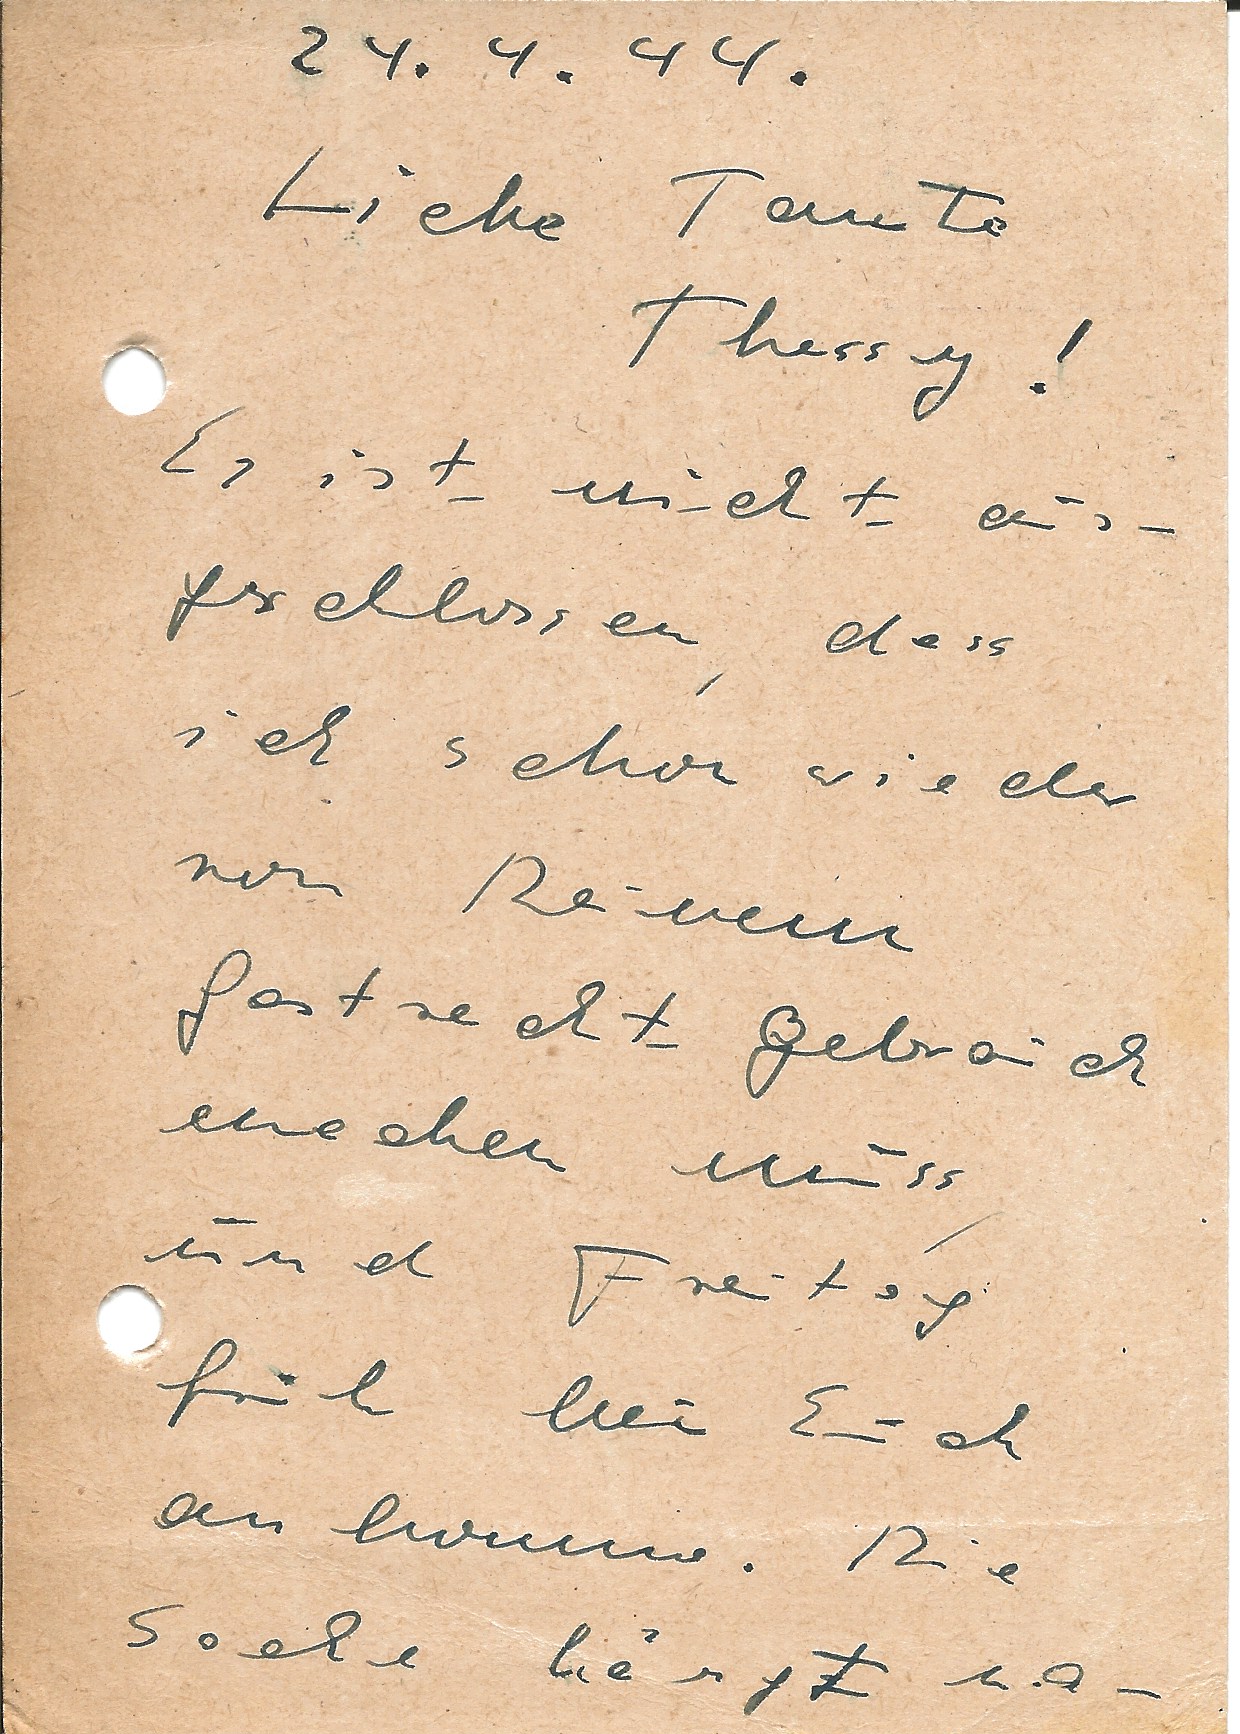 24. 4. 44.
Liebe Tante
Thessy!
Es ist nicht aus-
geschlossen, dass
ich schon wieder
von Deinem
Gastrecht Gebrauch
machen muss,
und Freitag
früh bei Euch
ankomme. Die
Sache hängt nä-